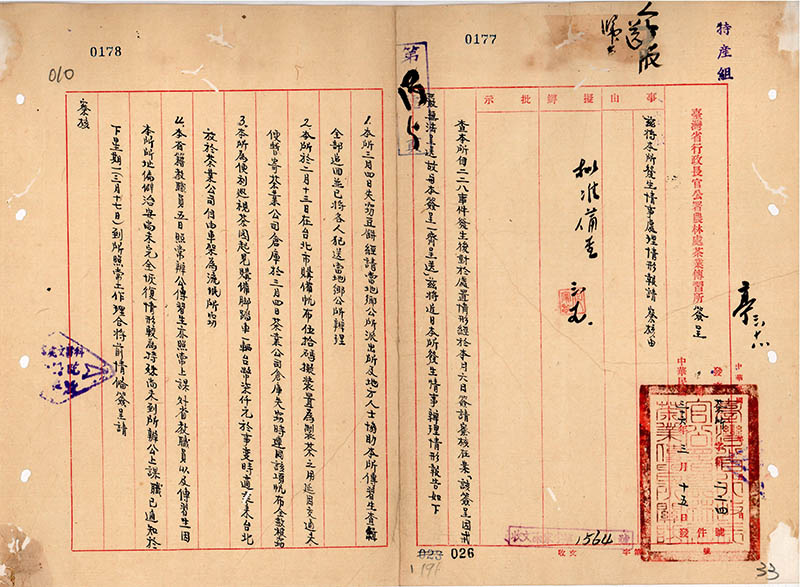 特産組
0177
臺灣省行政長官公署農林處茶業傳習所 簽呈
事由
擬辦
批示
茲將本所發生情事處理情形報請 察核由
擬准備查
中華民國卅六年三月十五日發
查本所自二二八事件發生後對於處置情形經於本月六日簽請察核在案(該簽呈因戒
嚴無法呈送故与本簽呈一齊呈送)茲將近日本所發生情事辦理情形報告如下
收文 字 1564 號
026
33
0178
010
1.本所三月四日失竊豆餅經請當地鄉公所派出所及地方人士協助本所傳習生查緝
全部追回並已將各人犯送當地鄉公所辦理
2.本所於二月十三日在台北市購備帆布伍拾碼擬裝置為製茶之用延因交通未
便暫寄茶業公司倉庫於三月四日茶業公司倉庫失竊時連同該項帆布全數被劫
3.本所為便利巡視茶園起見購備脚踏車一輛台幣柒仟元於事變時適在台北
放於茶業公司但由車架為流氓所竊
4.本省籍教職員五日照常辦公傳習生亦照常上課外省教職員以及傳習生因
本所所地偏僻治安尚未完全恢復情形較為特殊尚未到所辦公上課職已通知於
下星期一(三月十七日)到所照常工作理合將前情俻簽呈請
察核